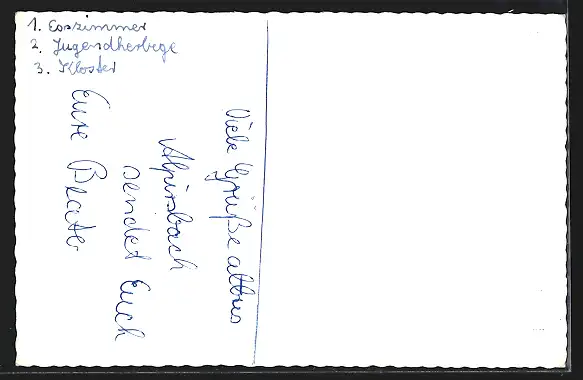 1. Esszimmer
2. Jugendherbege
3. Kloster
Viele Grüße aus
Alpirsbach
sendet Euch
Eure Beate